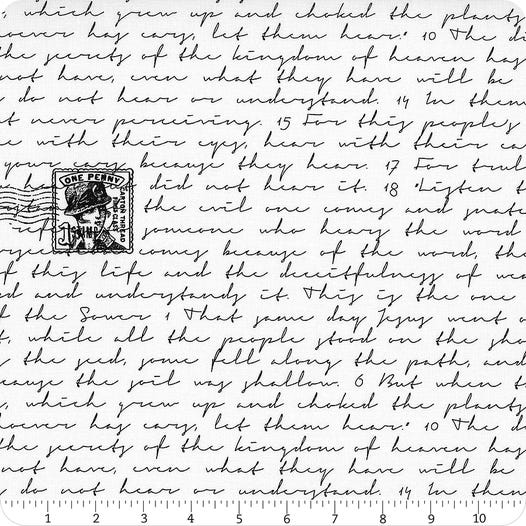 , which grew up and choked the plants
oever has ears, let them hear." 10 The di
the secrets of the kingdom of heaven has
not have, even what they have will be
do not hear or understand. 14 In them
t never perceiving. 15 For this people's
e with their eyes, hear with their ea
your ears because they hear. 17 For trul
did not hear it. 18 "Listen t
ONE PENNY
CARTON THREAD
the evil one comes and snatc
someone who hears the word
comes because of the word, the
f this life and the deceitfulness of wea
d and understands it. This is the one
f the Sower 1 That same day Jesus went o
t, while all the people stood on the sho
the seed, some fell along the path, and
cause the soil was shallow. 6 But when t
, which grew up and choked the plants
oever has ears, let them hear." 10 The di
the secrets of the kingdom of heaven has
not have, even what they have will be
do not hear or understand. 14 In them
1 2 3 4 5 6 7 8 9 10